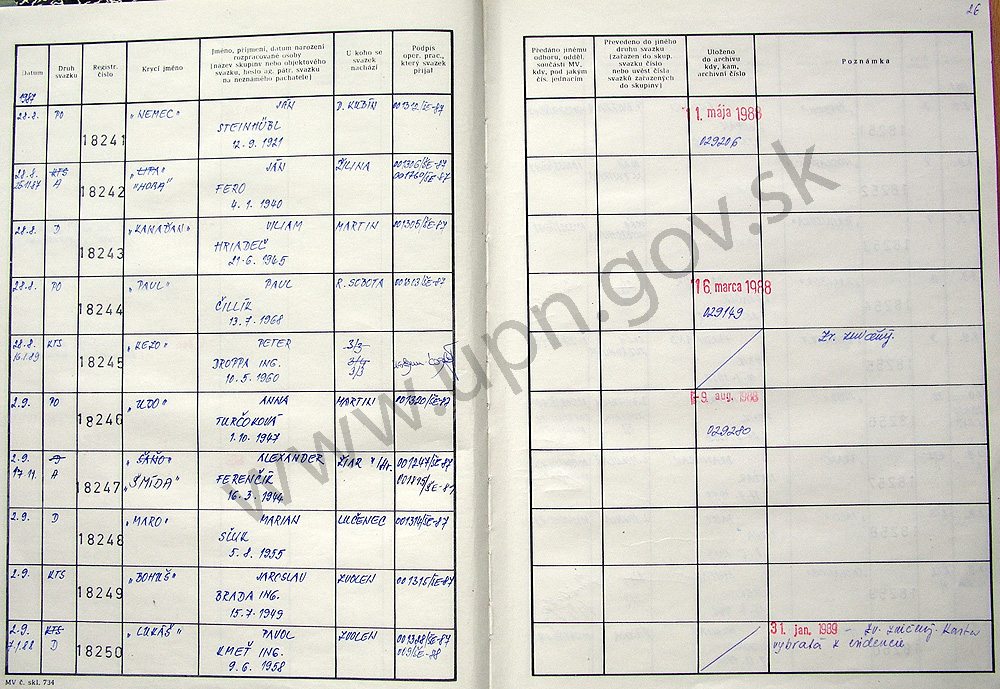 26
Datum
Druh svazku
Registr. číslo
Krycí jméno
Jméno, příjmení, datum narození rozpracované osoby
[název skupiny nebo objektového svazku, heslo ag. pátr. svazku na neznámého pachatele]
U koho se svazek nachází
Podpis oper. prac., který svazek přijal
Předáno jinému odboru, odděl. součásti MV, kdy, pod jakým čís. jednacím
Převedeno do jiného druhu svazku [zařazen do skup. svazku číslo nebo uvést čísla svazků zařazených do skupiny]
Uloženo do archivu kdy, kam, archivní číslo
Poznámka
1987
28.8. PO 18241 „NEMEC" JÁN D. KUBÍN 001312/ŠE-87 11. mája 1988
STEINHÜBL 029206
12. 9. 1921
28.8. KTS 18242 „LIPA" JÁN ŽILINA 001306/ŠE-87
25.11.87 A „HORA" FERO 001760/ŠE-87
4. 1. 1940
28.8. D 18243 „KANAĎAN" VILIAM MARTIN 001305/ŠE-87
HRIADEĽ
21. 6. 1945
28.8. PO 18244 „PAUL" PAUL R. SOBOTA 001313/ŠE-87 16. marca 1988
ČILLÍK 029149
13. 7. 1968
28.8. KTS 18245 „REZO" PETER 3/3 Zv. zničený.
16.1.89 DROPPA ING. 3/4
10. 5. 1960 3/3
2.9. PO 18246 „UDO" ANNA MARTIN 001320/ŠE-87 -9. aug. 1988
TURČOKOVÁ 029280
1. 10. 1947
2.9. D 18247 „SAŇO" ALEXANDER ŽIAR n/Hr. 001247/ŠE-87
17.11. A „ŠMÍDA" FERENČÍK 001815/ŠE-87
16. 3. 1944
2.9. D 18248 „MARO" MARIAN LUČENEC 001314/ŠE-87
5. 8. 1955
2.9. KTS 18249 „BOHUŠ" JAROSLAV ZVOLEN 001315/ŠE-87
BRADA ING.
15. 7. 1949
2.9. KTS 18250 „LUKÁŠ" PAVOL ZVOLEN 001328/ŠE-87 31. jan. 1989 – Zv. zničený. Karta
7.1.88 D KMEŤ ING. 009/ŠE-88 vybratá z evidencie
9. 6. 1958
MV č. skl. 734
www.upn.gov.sk